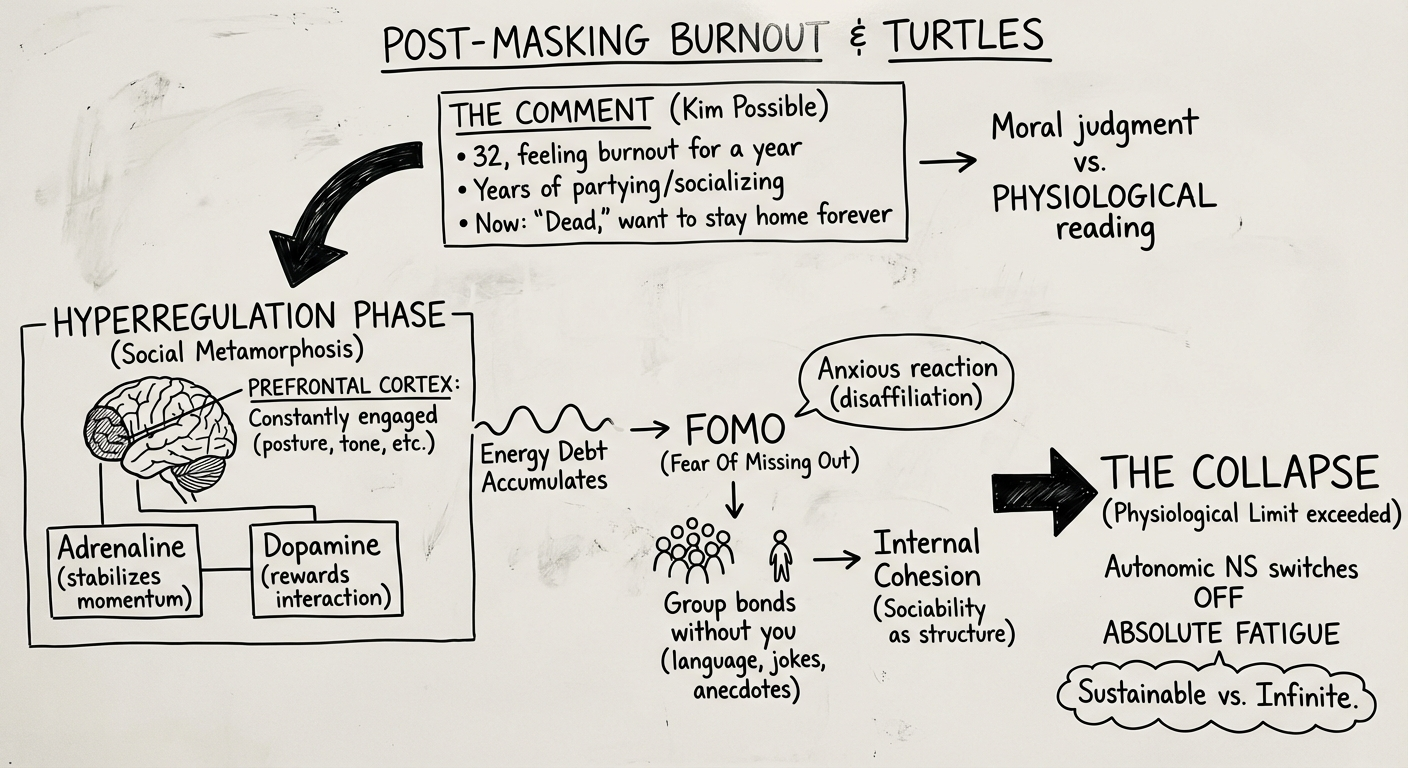 POST-MASKING BURNOUT & TURTLES
THE COMMENT (Kim Possible)
• 32, feeling burnout for a year
• Years of partying/socializing
• Now: "Dead," want to stay home forever
Moral judgment
vs.
PHYSIOLOGICAL
reading
HYPERREGULATION PHASE
(Social Metamorphosis)
PREFRONTAL CORTEX:
Constantly engaged
(posture, tone, etc.)
Adrenaline
(stabilizes
momentum)
Dopamine
(rewards
interaction)
Energy Debt
Accumulates
FOMO
(Fear Of Missing Out)
Anxious reaction
(disaffiliation)
Group bonds
without you
(language, jokes,
anecdotes)
Internal
Cohesion
(Sociability
as structure)
THE COLLAPSE
(Physiological Limit exceeded)
Autonomic NS switches
OFF
ABSOLUTE FATIGUE
Sustainable vs. Infinite.